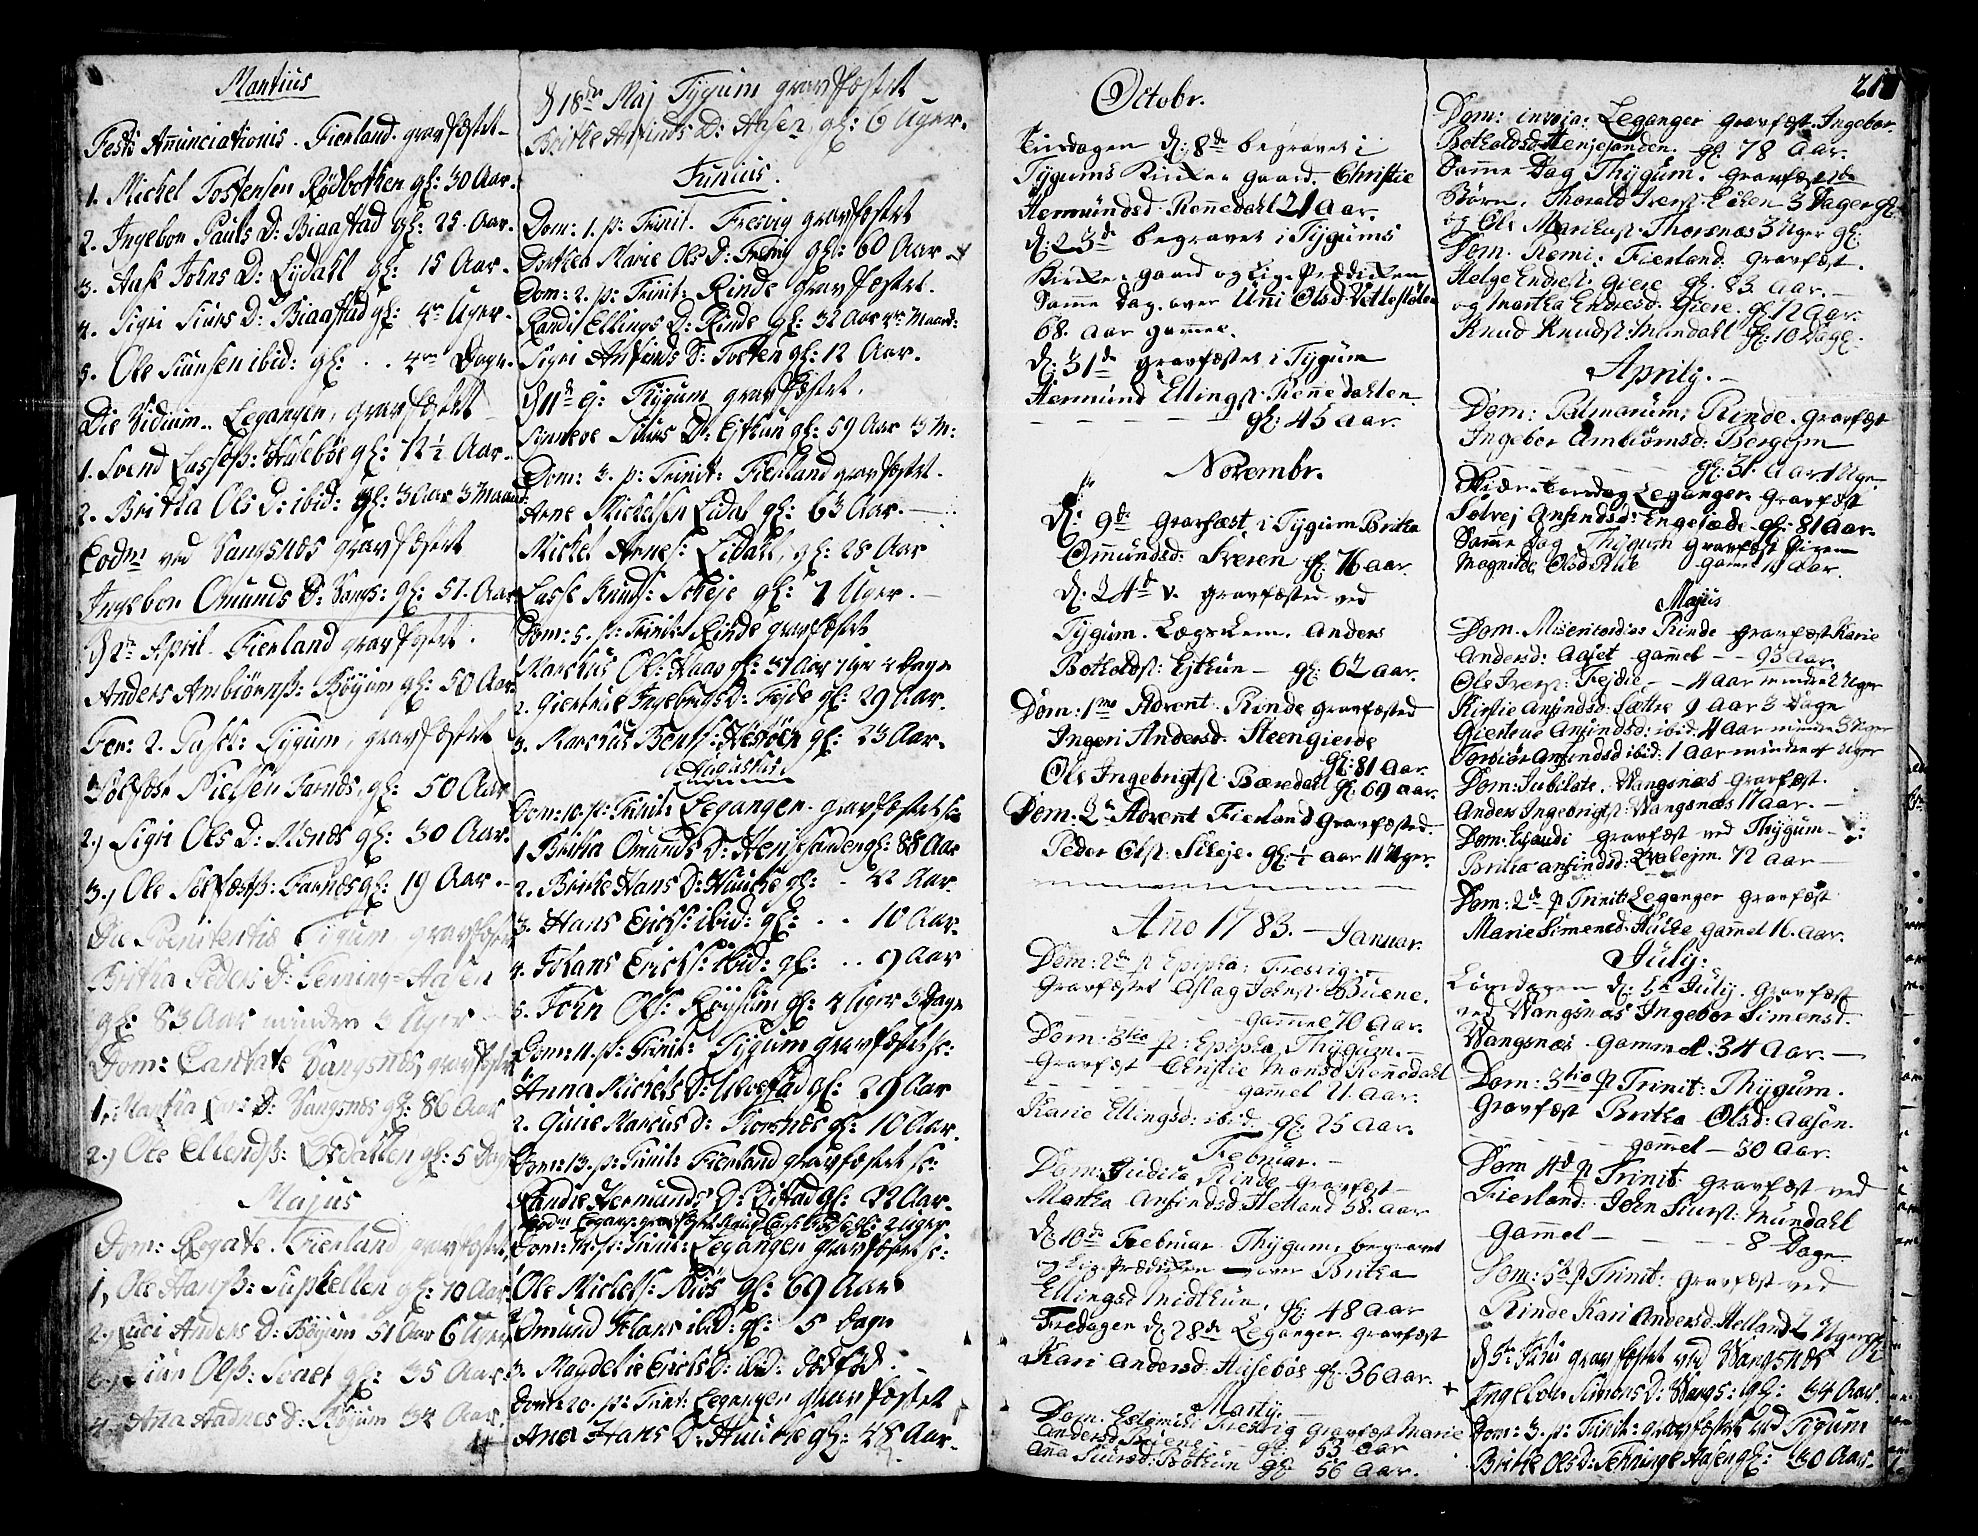 Martius
Festo Anunciationis. Fierland. gravfæstet
1. Michel Tostensen Rødbotten gl: 30 Aar.
2. Ingebor Pauls D: Biaastad gl: 25. Aar.
3. Aase Johns D: Lidahl gl: 15 Aar.
4. Sigri Siurs D: Biaastad gl: 4re Uger.
5. Ole Siursen ibid: gl: . . 4re Dage.
Die Viridium. Leganger, gravfæstet
1. Svend Lassesß: Husebøe gl: 12½ Aar.
2. Britha Ols D: ibid: gl: 3 Aar 3 Maand
Eodm ved Vangsnæs gravfæstet
Ingebor Omunds D: Vangs: gl: 51. Aar
D 2n April. Fierland gravfæstet.
Anders Ambiørnsß: Bøyum gl: 50 Aar.
Fer: 2. Pasch: Tygum, gravfæstet
Sølfæst Nielsen Farnæs, gl: 50 Aar
2.) Sigri Ols D: Aldnæs gl: 30 Aar.
3.) Ole Sølfæstß: Farnæs gl: 19 Aar.
Die Poenitentiæ Tygum, gravfæstet
Britha Peders D: Tenning-Aasen
gl: 83 Aar mindre 3 Uger
Dom: Cantate Vangsnæs, gravfæstet
1. Martha Lars D: Vangsnæs gl: 86 Aar
2.) Ole Ellendsß: gl: 5 Dage
Majus
Dom: Rogate. Fierland gravfæstet
1, Ole Hansß: Suphellen gl: 70 Aar
2.) Luci Anders D: Bøyum 51 Aar 6 Uger
3.) Siur Olsß: gl: 35 Aar
4. Ana Aadnes D: Bøyum 34 Aar.
D 18de Maj Tygum gravfæstet
Brithe Arinds D: Aasen, gl: 6 Uger.
Junius.
Dom: 1. p: Trinit. Fresvig gravfæstet
Dorthea Marie Ols D: Fresvig gl: 60 Aar
Dom: 2. p: Trinit: Rinde gravfæstet.
Randi Ellings D: Rinde gl: 32 Aar 4re Maand:
Sigri Anfinds D: Tosten gl: 12 Aar.
D 11de Tygum gravfæstet.
Sirneve Siurs D: Eithun gl: 59 Aar 3 M:
Dom: 3. p: Trinit: Fierland gravfæstet.
Arne Michelsen Lidal gl: 63 Aar.
Michel Arnes: Lidahl, gl: 28 Aar
Lasse Knuds: gl: 7 Uger.
Dom: 5. p: Trinit: Rinde gravfæstet
1. Marchus Ols: Haaß gl: 31 Aar 1 Uge 2 Dage
2. Giertrue Ingebrigts D: Feide gl: 29 Aar.
3. Marchus Bents: gl: 23 Aar.
Augustus.
Dom: 10. p: Trinit: Leganger gravfæstet se
1. Britha Omunds D: Henjesanden gl: 88 Aar
2. Brithe Hans D: Huuke gl: - 42 Aar.
3. Hans Erichs: ibid: gl: . . 10 Aar.
4. Johans Erichs: ibid: gl: . . 9 Aar
5. John Ols: Røysum gl: 4 Uger 3 Dage
Dom: 11. p: Trinit: Tygum gravfæstet se:
Anna Michels D: gl: 29 Aar
2. Gurie Marcus D: gl: 10 Aar.
Dom: 13. p: Trinit: Fierland gravfæstet se:
Randie Hermunds D: gl: 22 Aar.
Eodm Legangr gravfæstet gl: 2 Uger
Dom: 14. p: Trinit: Leganger gravfæstet se:
Ole Michels: gl: 69 Aar
2. Omund Johans ibid: gl: 5 Dage
3. Magdelie Erichs D: ibid: dødfød.
Dom: 20. p: Trinit: Leganger gravfæstet
Ana Hans D: Huuke gl: 48 Aar.
Octobr.
Tirsdagen d: 8de begravet i
Tygums Kirkegaard. Christie
Hermundsd: Rennedahl 21 Aar.
d: 23de begravet i Tygums
Kirkegaard og Lig Prædiken
Samme dag. over Uni Olsd: Vettestølen
68. Aar gammel.
d: 31de gravfæstet i Tygum
Hermund Ellingst: Rennedahlen
gl: 45 Aar.
Novembr.
d: 9de gravfæst i Tygum Britha
Ommundsd: Sveren gl: 76 Aar.
d: 24de gravfæsted ved
Tygum. Lægslem. Anders
Botholdst: Ejthun - gl: 62 Aar.
Dom: 1me Advent. Rinde gravfæsted
Ingeri Andersd. Steengierde
gl: 81 Aar.
Ole Ingebrigtst: Bærdahl gl: 69 aar.
Dom: 2de Advent Fierland gravfæsted.
Peder Olst: gl: ½ aar 11 Uger.
Ano 1783. - Januar.
Dom: 2de p Epipha: Fresvig.
gravfæstet Aslag Johnst: Buene.
gammel 70 Aar.
Dom: 3tio p: Epipha Thygum.
gravfæst Christie Monsd: Rennedahl
gammel 21. aar.
Karie Ellingsd: ibid. gl: 25 aar.
Februar.
Dom: Judica Rinde gravfæst
Martha Anfindsd: Hetland 58. aar
d: 10de Februar Thygum, begravet
og Lig Prædiken over Britha
Ellingsd Midthun, gl: 48 aar
Fredagen d: 28de Leganger gravfæst
Kari Andersd: Husebøe gl: 36 aar.
Marty.
Dom. Estomihi Fresvig gravfæst Marie
Andersd: gl: 53 aar
Ana Siursd: Bøthun gl 56 aar.
21
Dom: invoca: Leganger gravfæst. Ingebor
Botholdsd: Henjesanden. gl: 78 Aar.
Samme Dag Thygum. gravfæstede
Børn. Thorald Iverst: 3 Dager gl
og Ole Thorsnæs 3 Uger gl:
Dom. Remi: Fierland. gravfæst.
Helge Endrest: Giere gl. 83 aar.
og Martha Endresd: Giere gl: 12 aar
Knud Knudst: Mundahl gl: 10 Dage.
Aprily.
Dom: Palmarum, Rinde. gravfæst
Ingebor Ambiørnsd: Bergejm
gl: 31. aar 1 Uge
Skiær-torsdag Leganger gravfæst
Solvej Anfindsd: Engesæde gl: 81 aar.
Samme Dag Thygum gravfæst Pigen
Magnilde Olsd: gammel 14 aar.
Majus
Dom. Misericordias Rinde gravfæst Karie
Andersd: Aaset gammel - - 93 aar.
Ole Iverst: Fejdie - - 4 aar mindre 2 Uger
Kirstie Anfindsd: Sættre 9 aar 3 Dage
Giertrue Anfindsd: ibid: 4 aar mindre 3 Uger
Torbiør Anfindsd ibid: 1 aar mindre 4 Uger
Dom: Jubilate. Wangsnæs gravfæst.
Anders Ingebrigtst: Wangsnæs 17 aar.
Dom. Exaudi gravfæst ved Thygum
Britha Anfindsd: Qvalejm. 72 aar
Dom: 2de p Trinit: Leganger gravfæst
Marie Simensd: Huuke gammel 16. aar.
July.
Løverdagen d: 5te July. gravfæst
ved Wangsnæs Ingebor Simensd.
Wangsnæs gammel: 34 aar.
Dom: 3tio p Trinit: Thygum.
gravfæst Britha Olsd: Aasen.
gammel - 30 aar.
Dom 4de p Trinit: gravfæst ved
Fierland. John Siurst: Mundahl
gammel - 8 Dage
Dom: 5te p Trinit: gravfæst ved
Rinde Kari Andersd: Hetland 2 Uger gl:
D 5te Juli gravfæstet ved Vangsnæs
Ingebor Simens D: Vangs: gl: 34 Aar.
Dom: 3. p: Trinit: gravfæstet ved Tygum
Brithe Ols D: Tenninge Aasen gl: 30 Aar.